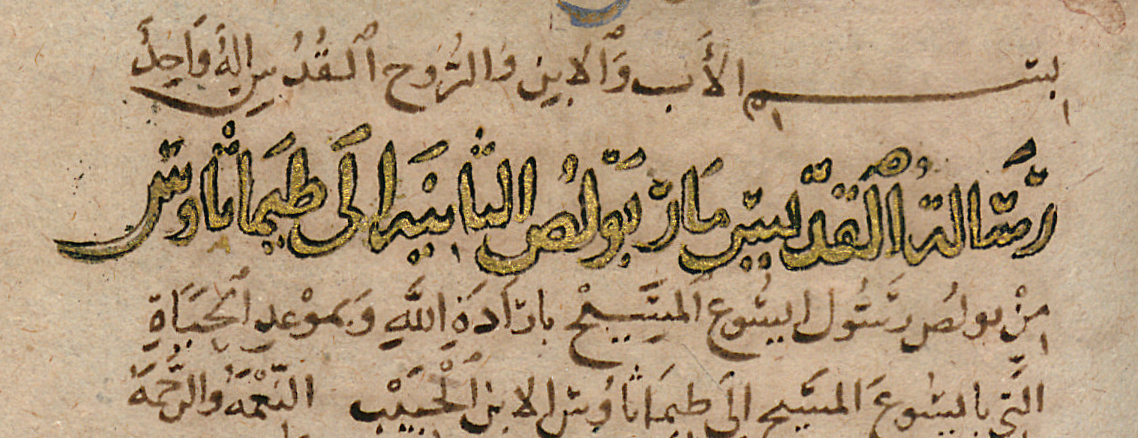 بسم الأَب وَالابن وَالرُّوح القُدُس إلهٌ وَاحِدٌ
رسَالةُ القدّيس مَار بَوْلُص الثانيَه الَى طيمَاثاوس
مِنْ بولُص رَسُول ايسُوع المسِيح بارَادَةِ اللَّهِ وَبموْعدِ الحيَاةِ
الَّتِي بايسُوعَ المسَيح الَى طيمَاثاوُس الابن الْحَبيْب النّعْمَهُ وَالرَّحْمَهُ